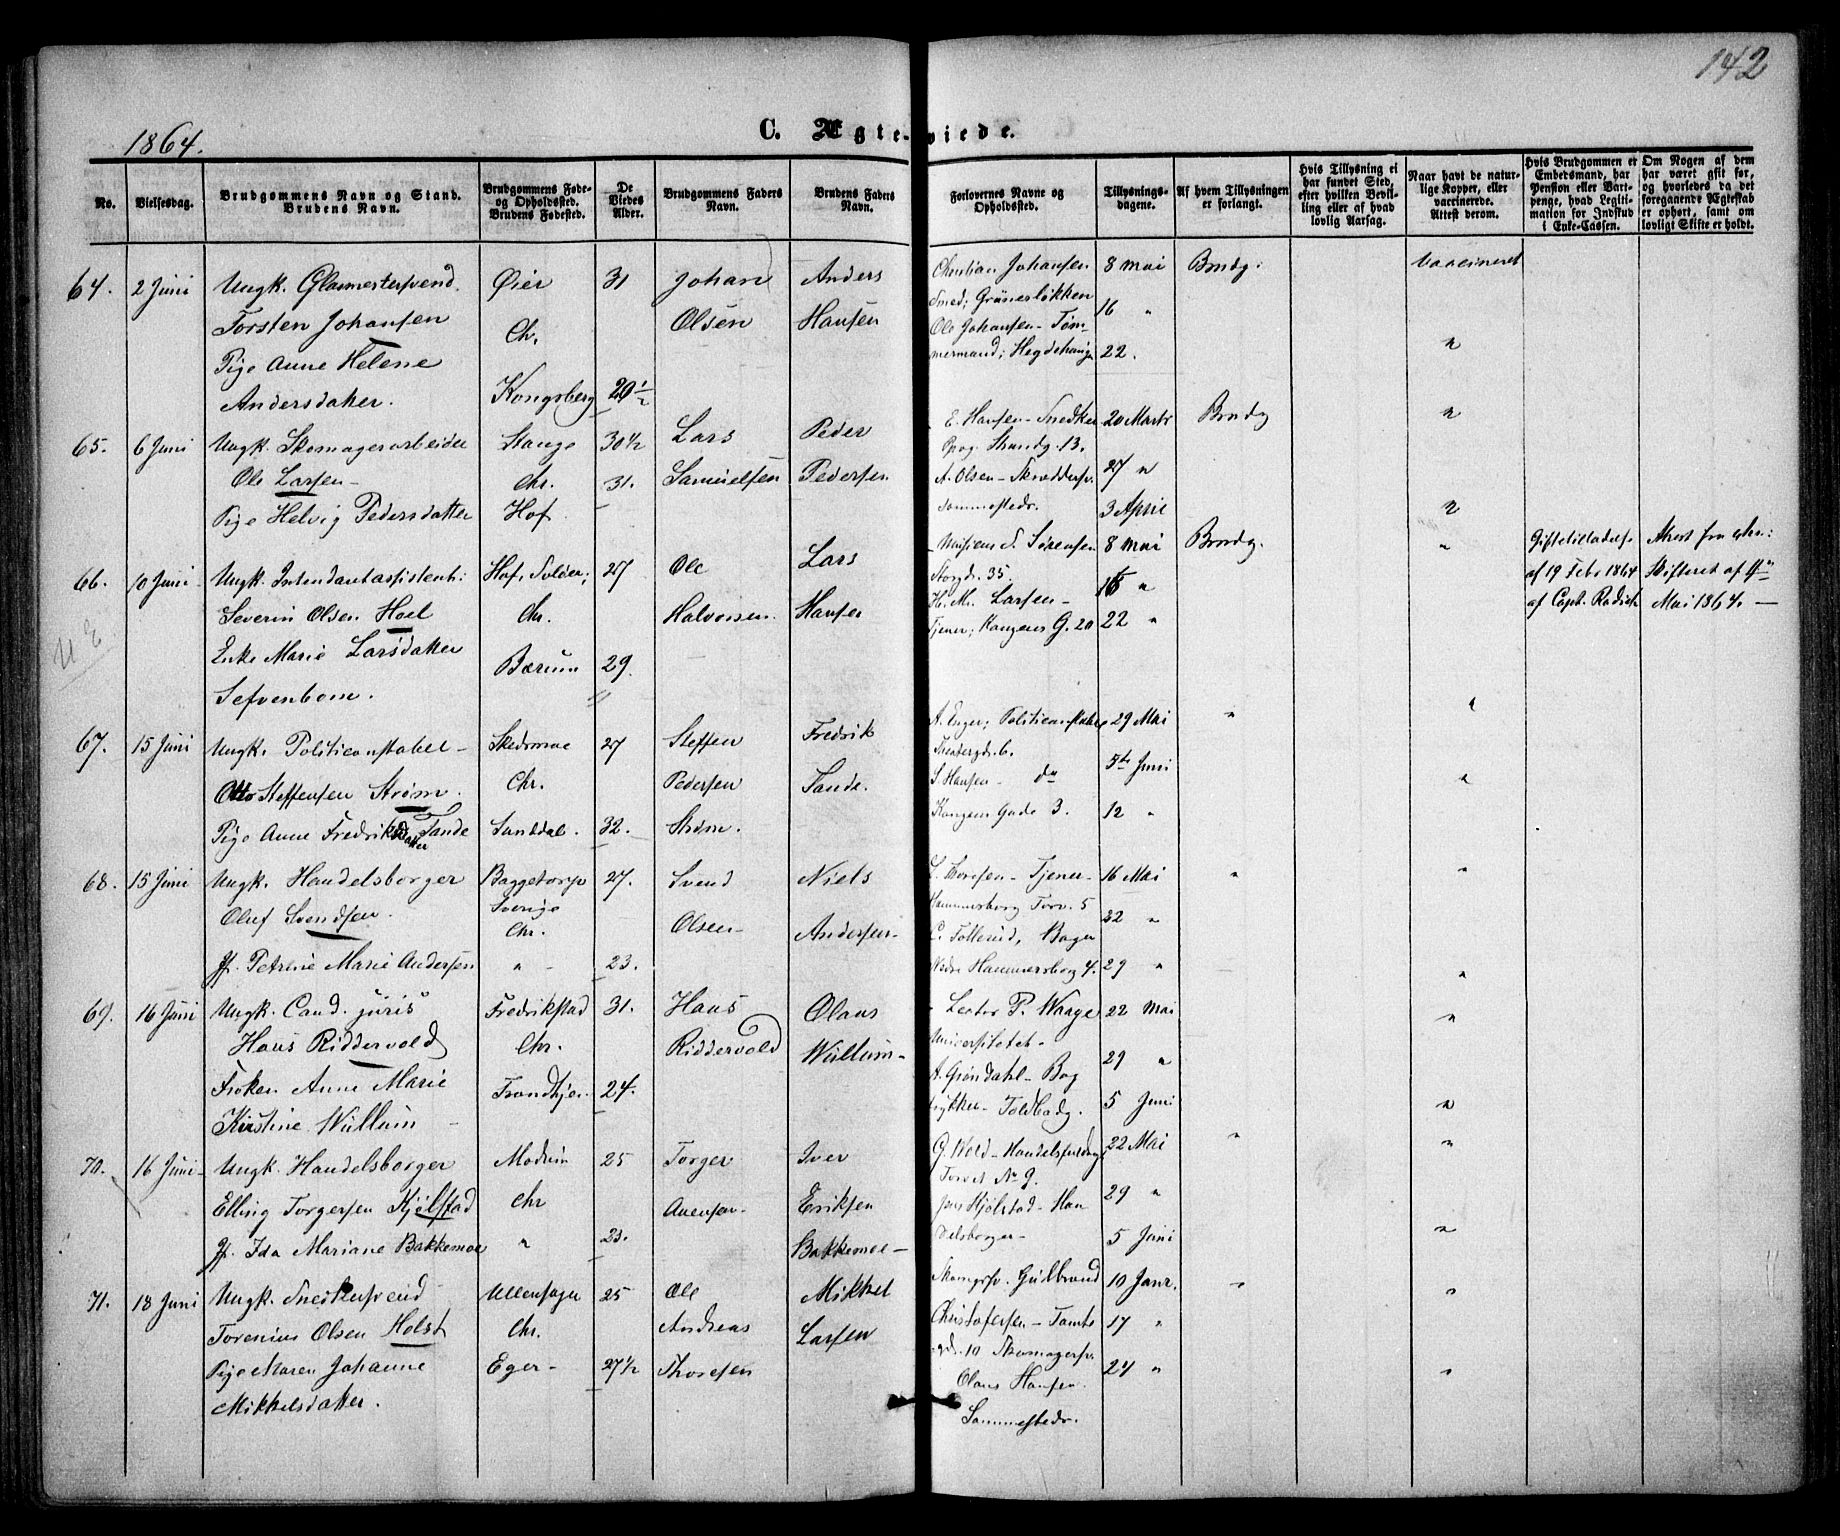 142
1864.
C. Ægteviede.
No.
Vielsesdag.
Brudgommens Navn og Stand.
Brudens Navn.
Brudgommens Føde-
og Opholdssted.
Brudens Fødested.
De
Viedes
Alder.
Brudgommens Faders
Navn.
Brudens Faders
Navn.
Forlovernes Navne og
Opholdssted.
Tillysnings-
dagene.
Af hvem Tillysningen
er forlangt.
Hvis Tillysning ei
har fundet Sted,
efter hvilken Bevil-
ling eller af hvad
lovlig Aarsag.
Naar havt de natur-
lige Kopper, eller
vaccinerede.
Attest derom.
Hvis Brudgommen er
Embedsmand, har
Pension eller Vart-
penge, hvad Legiti-
mation for Indskud
i Enke-Cassen.
Om Nogen af dem
har været gift før,
og hvorledes da det
foregaaende Ægteskab
er ophørt, samt om
lovligt Skifte er holdt.
64. 2 Juni Ungk. Glasmestersvend Øier 31 Johan Anders Christian Johansen 8 Mai Brudg. Vaccineret
Torsten Johansen Chr. Olsen Hansen Smed; Grünerløkken 16 "
Ole Johansen - Tøm-
Pige Anne Helene mermand; Hegdehaugen 22. "
Andersdatter. Kongsberg 20 1/2
65. 6 Juni Ungk. Skomagerarbeider Stange 30 1/2 Lars Peder E. Hansen - Snedker 20 Marts Brudg "
Ole Larsen - Chr. 31. Samuelsen Pedersen Strandg. 13.
A. Olsen - Skrædersv. 27 "
Pige Helvig Pedersdatter Hof. Sammesteds. 3 April "
66. 10 Juni Ungk. Intendantassistent: Hof, Soløer; 27 Ole Lars S. Sørensen 8 Mai Brudg. " Giftetilladelse
Storgd. 35. af 19 Febr 1864
Severin Olsen Hoel Chr. Halvorsen Hansen H. M. Larsen - 16 " af Capt. Radich Mai 1864. -
Tjener; Kongens G. 20 22 "
Enke Marie Larsdatter Bærum 29.
Sefvenbom.
67. 15 Juni Ungk. Politiconstabel - Skedsmoe 27 Steffen Fredrik A. Enger; Politiconstabel 29 Mai " "
Otto Steffensen Strøm. Chr. Pedersen Tande. S. Hansen - do 5te Juni "
Pige Anne Fredriksdatter Tande Sunddal. 32. Strøm. Kongens Gade 3. 12 "
68. 15 Juni Ungk. Handelsborger Baggetorp 27. Svend Niels Tjener - 16 Mai " "
Sverige Hammersborg Torv. 5
Oluf Svendsen. Chr. Olsen - Andersen - C. Tollerud, Bager 22 "
Jf. Petrine Marie Andersen " - 23. Nedre Hammersborg 4. 29 " "
69. 16 Juni Ungk. Cand. juris Fredrikstad 31. Hans Olaus Lector P. Waage 22 Mai "
Hans Riddervold Chr. Riddervold Wullum - Universitetet -
A. Grøndahl - Bog 29 "
Frøken Anne Marie Trondhjem 24. trykker - Toldbodg. 5 Juni "
Kirstine Wullum -
70. 16 Juni Ungk. Handelsborger Modum 25 Torger Iver G. Wold - Handelsfuldmg 22 Mai " "
Torvet No 9.
Elling Torgersen Kjølstad Chr Auensen - Eriksen Kjølstad - Han 29 "
Jf. Ida Mariane Bakkemoe " 23. Bakkemoe - delsborger - 5 Juni "
71. 18 Juni Ungk. Snedkersvend Ullensager 25 Ole Mikkel Skomgrsv. Gudbrand 10 Janr. " "
Torenius Olsen Holst Chr. Andreas Larsen Christofersen - Tomte 17 "
gd. 10 Skomagersv.
Pige Maren Johanne Eger - 27 1/2 Thoresen Olaus Hansen. 24 " "
Mikkelsdatter. Sammesteds.